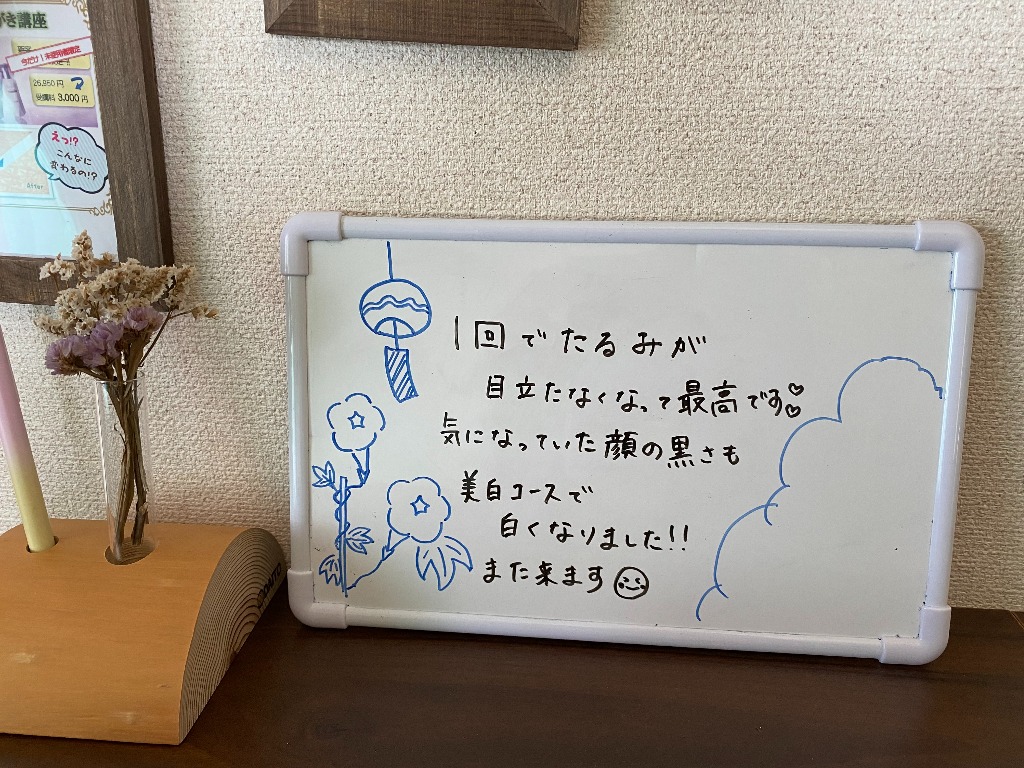 き講座
今だけ！
26,950円
受講料 3,000円
えっ!?
こんなに
変わるの!?
After
1回でたるみが
目立たなくなって最高です♡♡
気になっていた顔の黒さも
美白コースで
白くなりました!!
また来ます